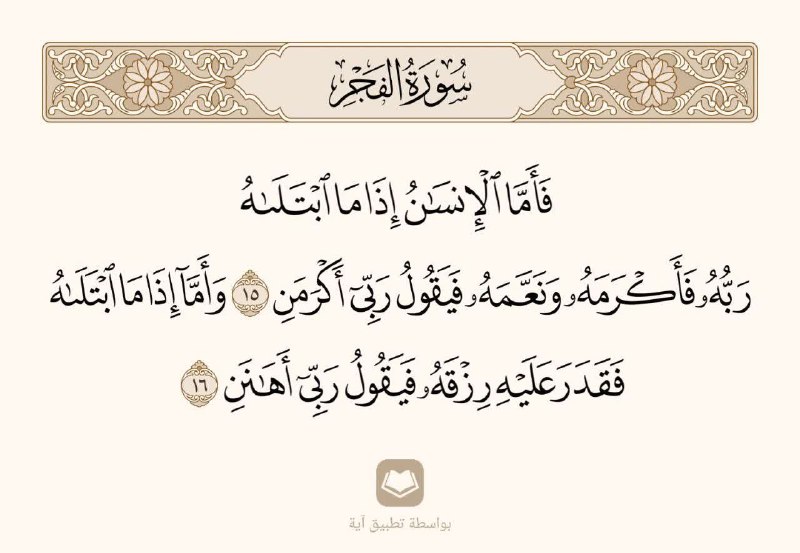 سُورَةُ الفَجْرِ
فَأَمَّا ٱلْإِنسَٰنُ إِذَا مَا ٱبْتَلَىٰهُ
رَبُّهُۥ فَأَكْرَمَهُۥ وَنَعَّمَهُۥ فَيَقُولُ رَبِّىٓ أَكْرَمَنِ ١٥ وَأَمَّآ إِذَا مَا ٱبْتَلَىٰهُ
فَقَدَرَ عَلَيْهِ رِزْقَهُۥ فَيَقُولُ رَبِّىٓ أَهَٰنَنِ ١٦
بواسطة تطبيق آية